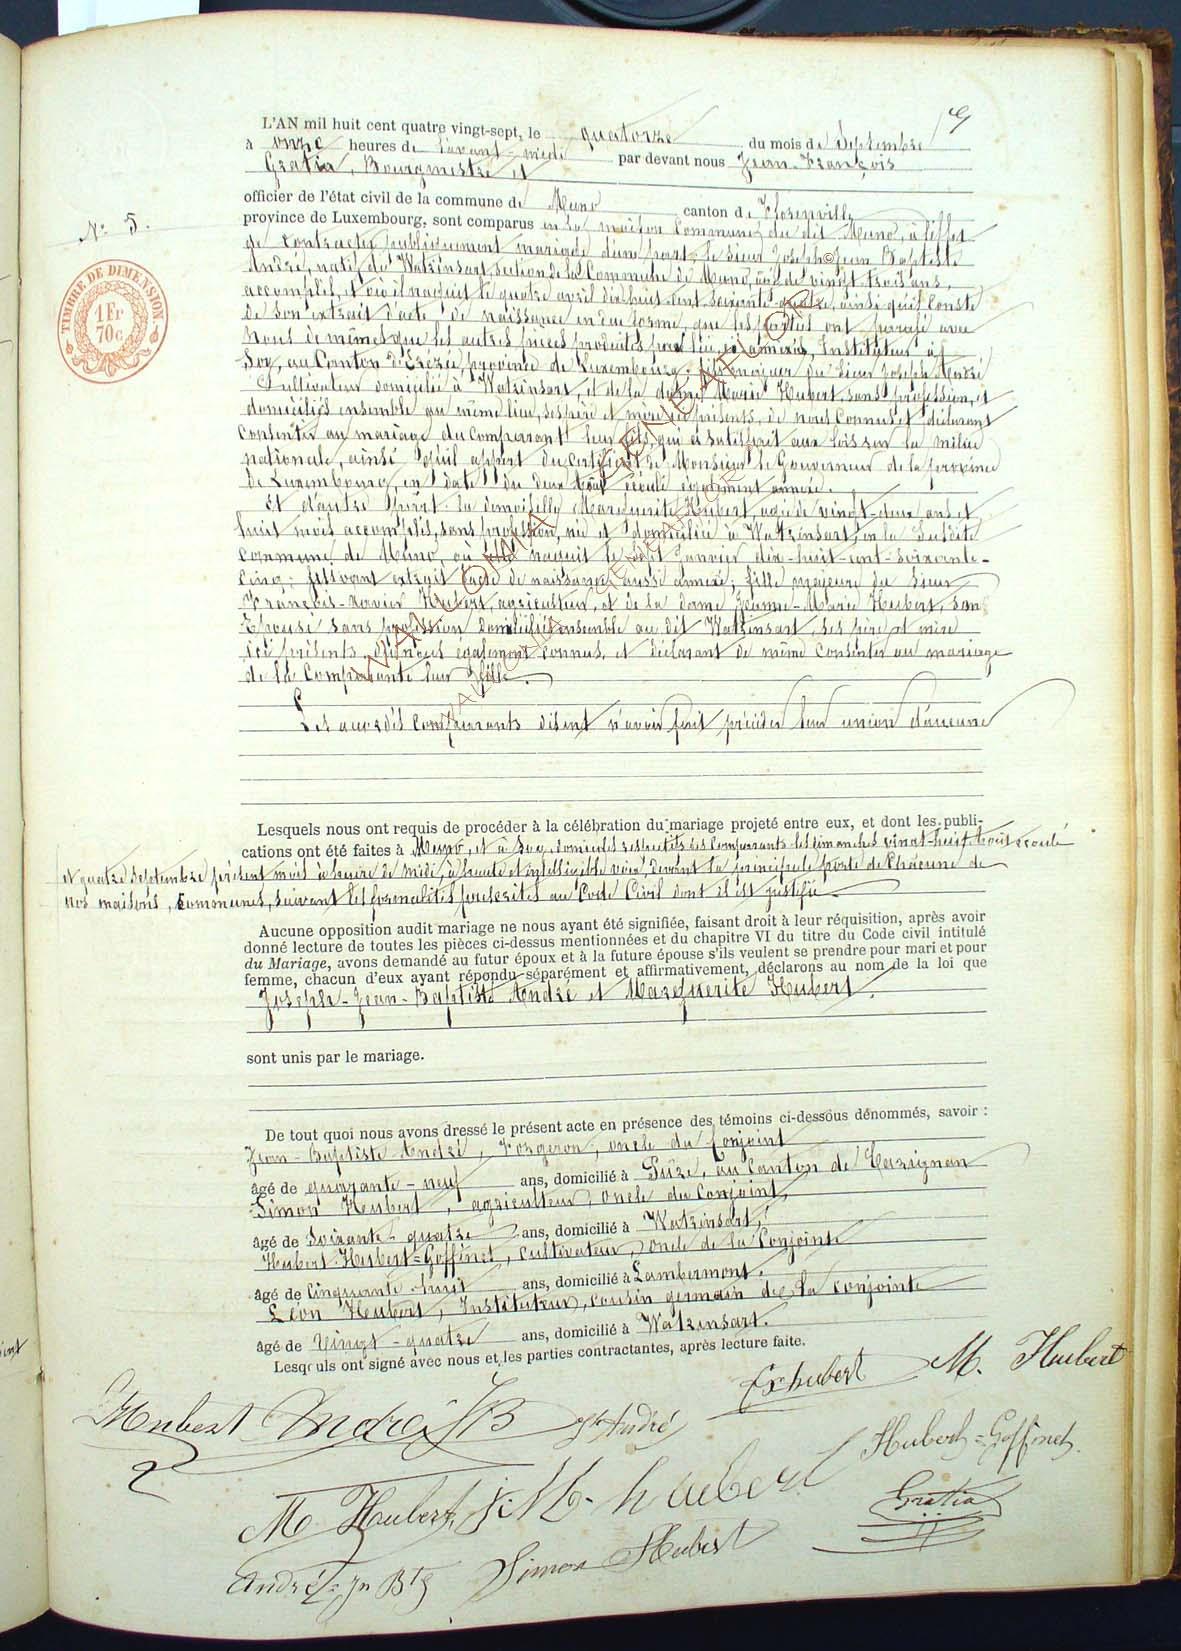 19
L'AN mil huit cent quatre vingt-sept, le quatorze du mois de Septembre
à onze heures de l'avant-midi par devant nous Jean-François
Gratia, Bourgmestre et
officier de l'état civil de la commune de Muno canton de Florenville
N° 5.
province de Luxembourg, sont comparus en la maison Communale du dit Muno, à l'effet
de contracter publiquement mariage d'une part le sieur Joseph-Jean Baptiste
André, natif de Watrinsart, section de la Commune de Muno, âgé de vingt-trois ans
accomplis, et où il naquit le quatre avril dix huit cent soixante-quatre, ainsi qu'il conste
de son extrait d'acte de naissance en due forme, que les parties ont parafé avec
Nous de même que les autres pièces produites pour lieu, ci annexés, Instituteur à
Soy, au Canton d'Erezée province de Luxembourg, fils majeur du sieur Joseph André
Cultivateur domicilié à Watrinsart, et de la dame Marie Hubert, sans profession, et
domiciliés ensemble au même lieu, ses père et mère ici présents, de nous Connus et déclarant
consentir au mariage du Comparant leur fils, qui a satisfait aux lois sur la milice
nationale, ainsi qu'il appert du certificat de Monsieur le Gouverneur de la province
de Luxembourg, en date du deux écoulé également annexé.
Et d'autre part la demoiselle Marguerite Hubert, agée de vingt-deux ans et
huit mois accomplis, sans profession, née et domiciliée à Watrinsart, en la Susdite
Commune de Muno où elle naquit le sept Janvier dix-huit-cent-soixante-
cinq; suivant extrait d'acte de naissance aussi annexé; fille majeure du sieur
François-Xavier Hubert, agriculteur, et de la dame Jeanne-Marie Hubert, son
Epouse sans profession domiciliés ensemble au dit Watrinsart, ses père et mère
ici présents de nous également connus, et déclarant de même consentir au mariage
de la Comparante leur fille.
Les susdits comparants disent n'avoir fait précéder leur union d'aucune
Lesquels nous ont requis de procéder à la célébration du mariage projeté entre eux, et dont les publi-
cations ont été faites à Muno, et à Soy, domiciles respectifs des Comparants les dimanches vingt-huit août écoulé
et quatre Septembre présent mois à heure de midi, à haute et intelligible voix, devant la principale porte de Chacune de
nos maisons, Communes, suivant les formalités prescrites au Code Civil dont il est justifié.
Aucune opposition audit mariage ne nous ayant été signifiée, faisant droit à leur réquisition, après avoir
donné lecture de toutes les pièces ci-dessus mentionnées et du chapitre VI du titre du Code civil intitulé
du Mariage, avons demandé au futur époux et à la future épouse s'ils veulent se prendre pour mari et pour
femme, chacun d'eux ayant répondu séparément et affirmativement, déclarons au nom de la loi que
Joseph-Jean-Baptiste André et Marguerite Hubert.
sont unis par le mariage.
De tout quoi nous avons dressé le présent acte en présence des témoins ci-dessous dénommés, savoir :
Jean-Baptiste André, Forgeron, oncle du Conjoint
âgé de quarante-neuf ans, domicilié à Pure, au Canton de Carignan
Simon Hubert, agriculteur, oncle du Conjoint,
âgé de Soixante-quatre ans, domicilié à Watrinsart,
Hubert Hubert=Goffinet, cultivateur, oncle de la Conjointe
âgé de Cinquante-huit ans, domicilié à Lambermont.
Léon Hubert, Instituteur, cousin germain de la conjointe
âgé de Vingt-quatre ans, domicilié à Watrinsart.
Lesquels ont signé avec nous et les parties contractantes, après lecture faite.
Fx hubert M. Hubert
Hubert André JJB Jh André
Hubert=Goffinet
M Hubert J: M. hubert
Gratia
André Jn Bte Simon Hubert
TIMBRE DE DIMENSION
1 Fr
70 c
WALLONIA © GENEALOGIE
WALLONIA GENEALOGIE